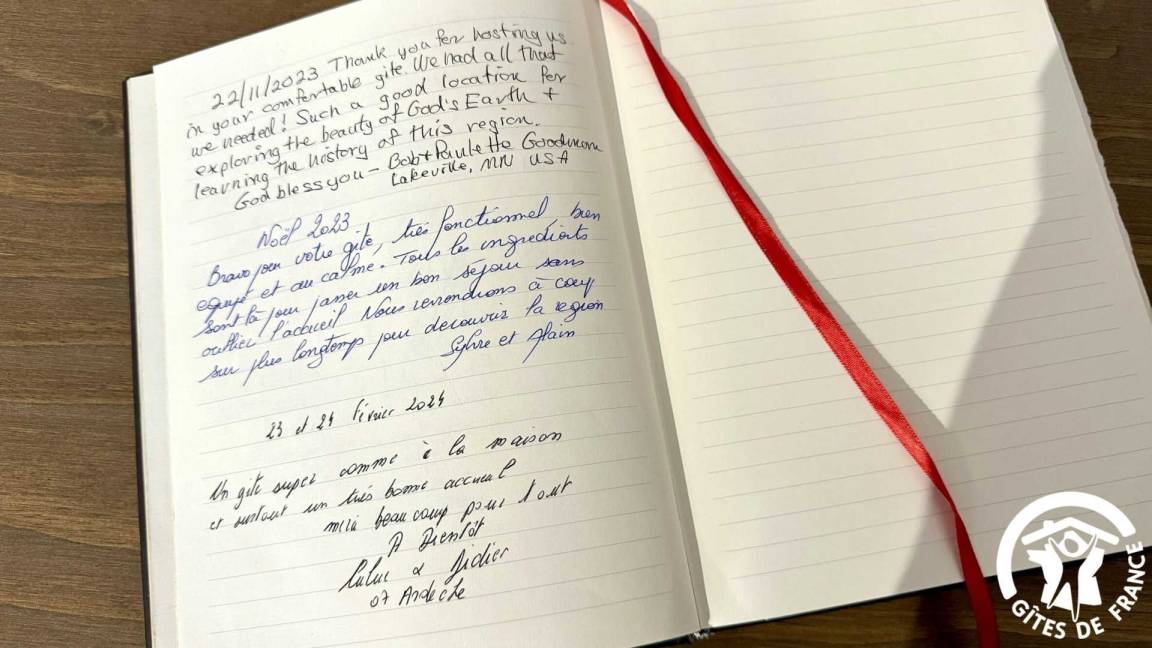 22/11/2023 Thank you for hosting us
in your comfortable gite. We had all that
we needed! Such a good location for
exploring the beauty of God's Earth +
learning the history of this region.
God bless you - Bob + Paulette Goodmann
Lakeville, MN USA
Noël 2023
Bravo pour votre gîte, très fonctionnel, bien
equipé et au calme. Tous les ingredients
sont là pour passer un bon séjour sans
oublier l'accueil Nous reviendrons à coup
sur plus longtemps pour decouvrir la region
Sylvie et Alain
23 et 24 Février 2024
Un gite super comme à la maison
et surtout un très bonne accueil
mirci beaucoup pour tout
A Bientôt
& Didier
07 Ardeche
GÎTES DE FRANCE